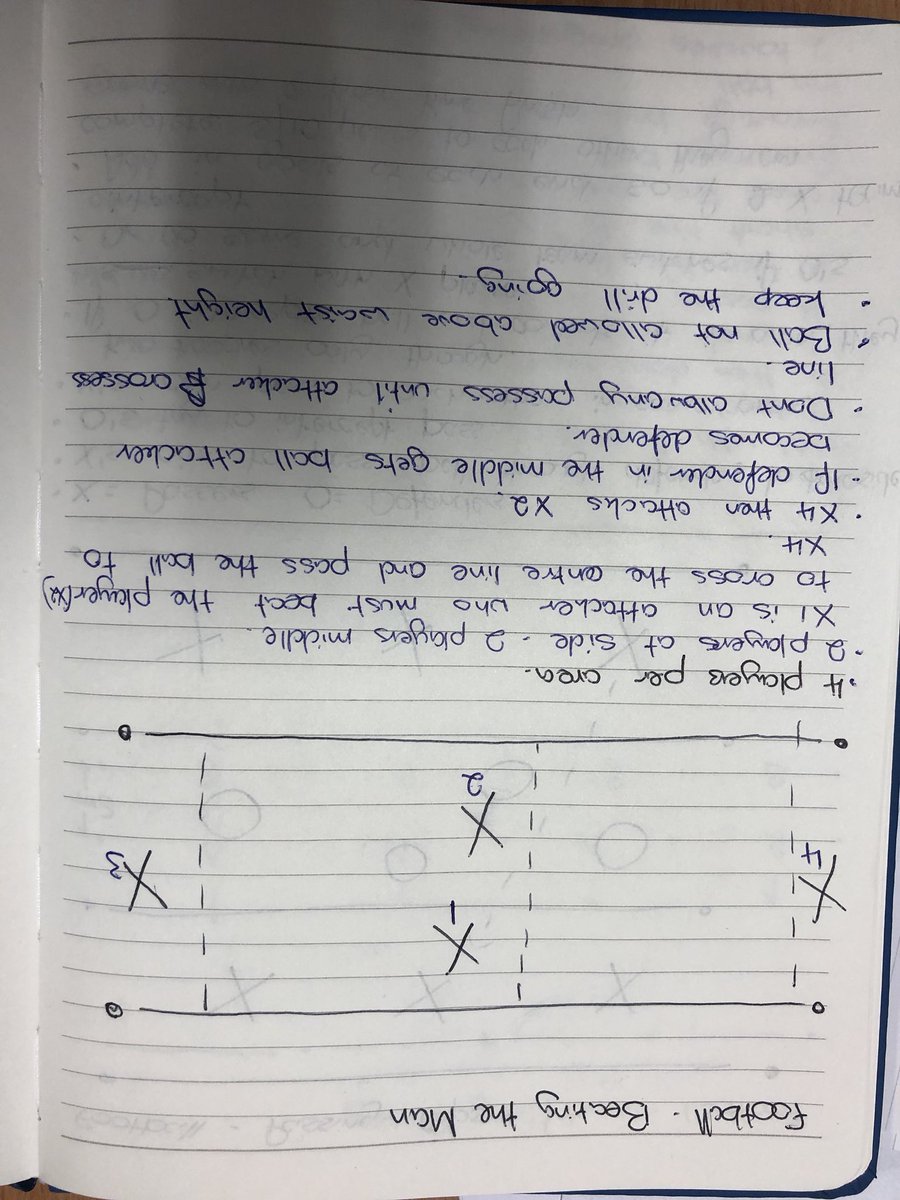 Football - Beating the Man
X4
X1
X3
X2
• 4 players per area.
• 2 players at side - 2 players middle.
X1 is an attacker who must beat the player(X2)
to cross the centre line and pass the ball to
X4.
• X4 then attacks X2.
• If defender in the middle gets ball attacker
becomes defender.
• Dont allowany possess until attacker crossess
line.
• Ball not allowed above waist height
• keep the drill going.